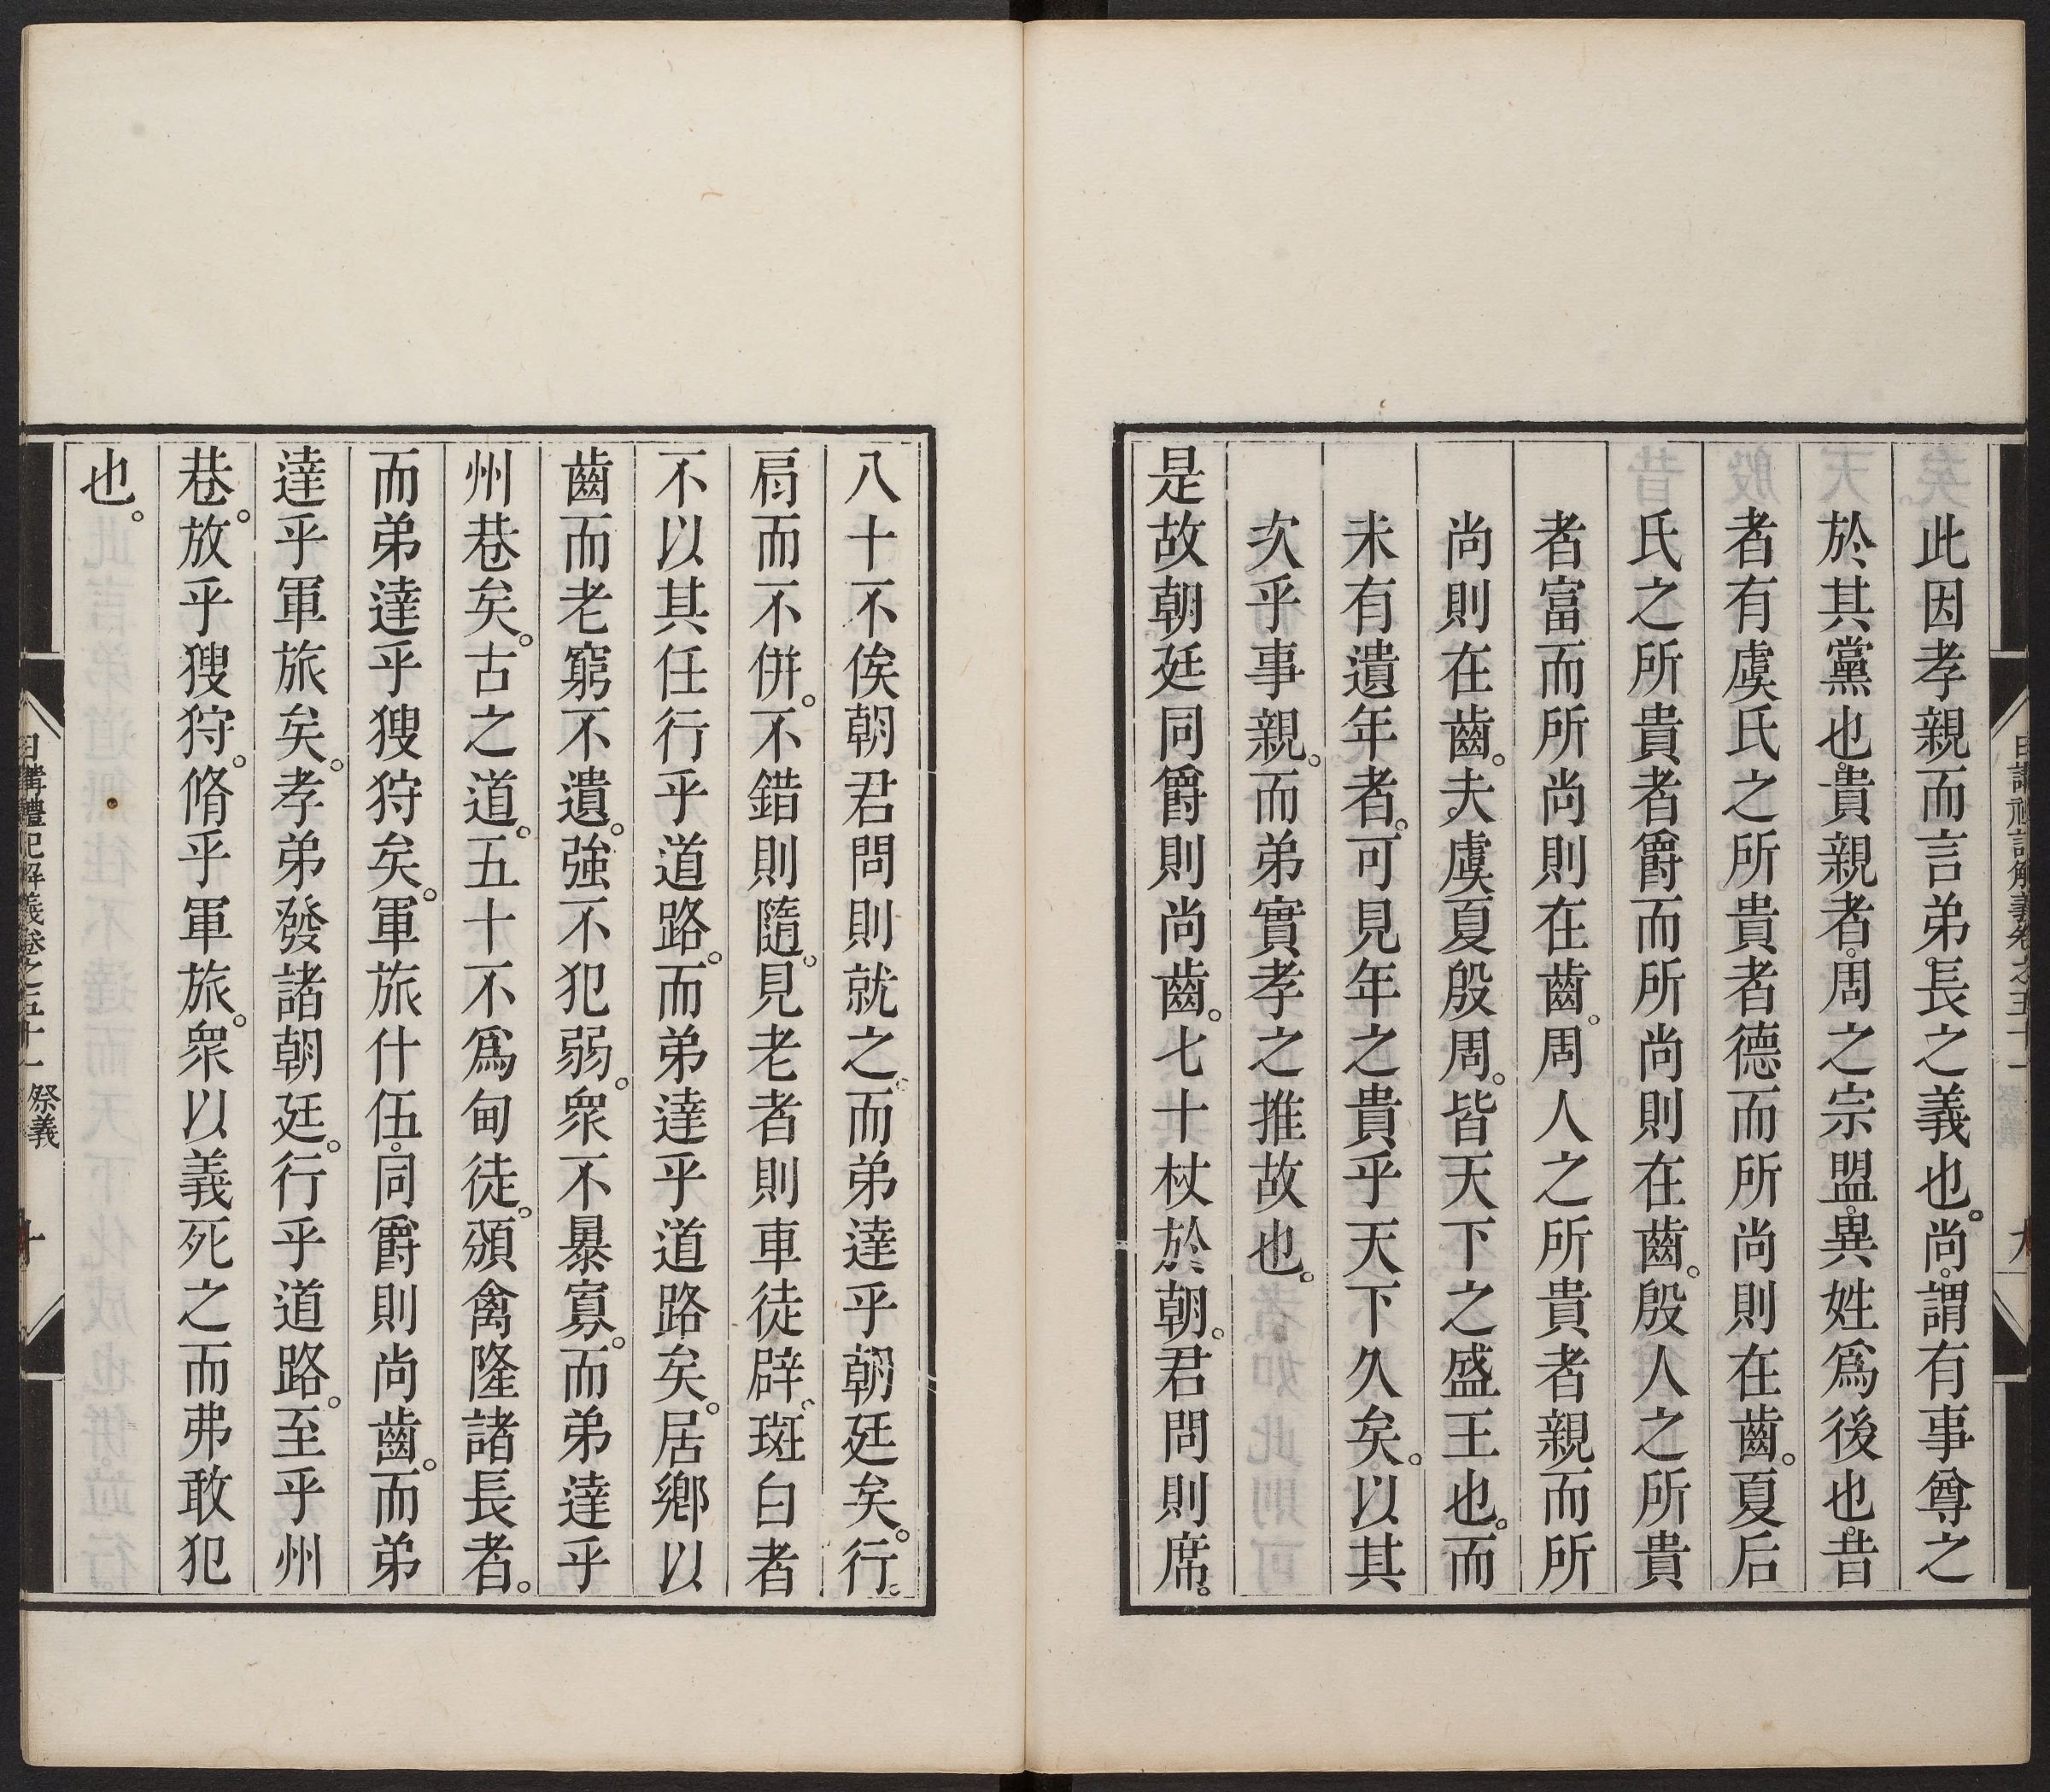 此因孝親而言弟。長之義也。尚。謂有事尊之
於其黨也。貴親者。周之宗盟。異姓爲後也。昔
者有虞氏之所貴者德而所尚則在齒。夏后
氏之所貴者爵而所尚則在齒。殷人之所貴
者富而所尚則在齒。周人之所貴者親而所
尚則在齒。夫虞夏殷周。皆天下之盛王也。而
未有遺年者。可見年之貴乎天下久矣。以其
次乎事親。而弟實孝之推故也。
是故朝廷同爵則尚齒。七十杖於朝。君問則席。
日講禮記解義卷之五十一
九
八十不俟朝君問則就之。而弟達乎朝廷矣。行。
肩而不併。不錯則隨。見老者則車徒辟。斑白者
不以其任行乎道路。而弟達乎道路矣。居鄉以
齒而老窮不遺。強不犯弱。衆不暴寡。而弟達乎
州巷矣。古之道。五十不爲甸徒。頒禽隆諸長者。
而弟達乎獀狩矣。軍旅什伍。同爵則尚齒。而弟
達乎軍旅矣。孝弟發諸朝廷。行乎道路。至乎州
巷。放乎獀狩。脩乎軍旅。衆以義死之而弗敢犯
也。
日講禮記解義卷之五十一 祭義
十